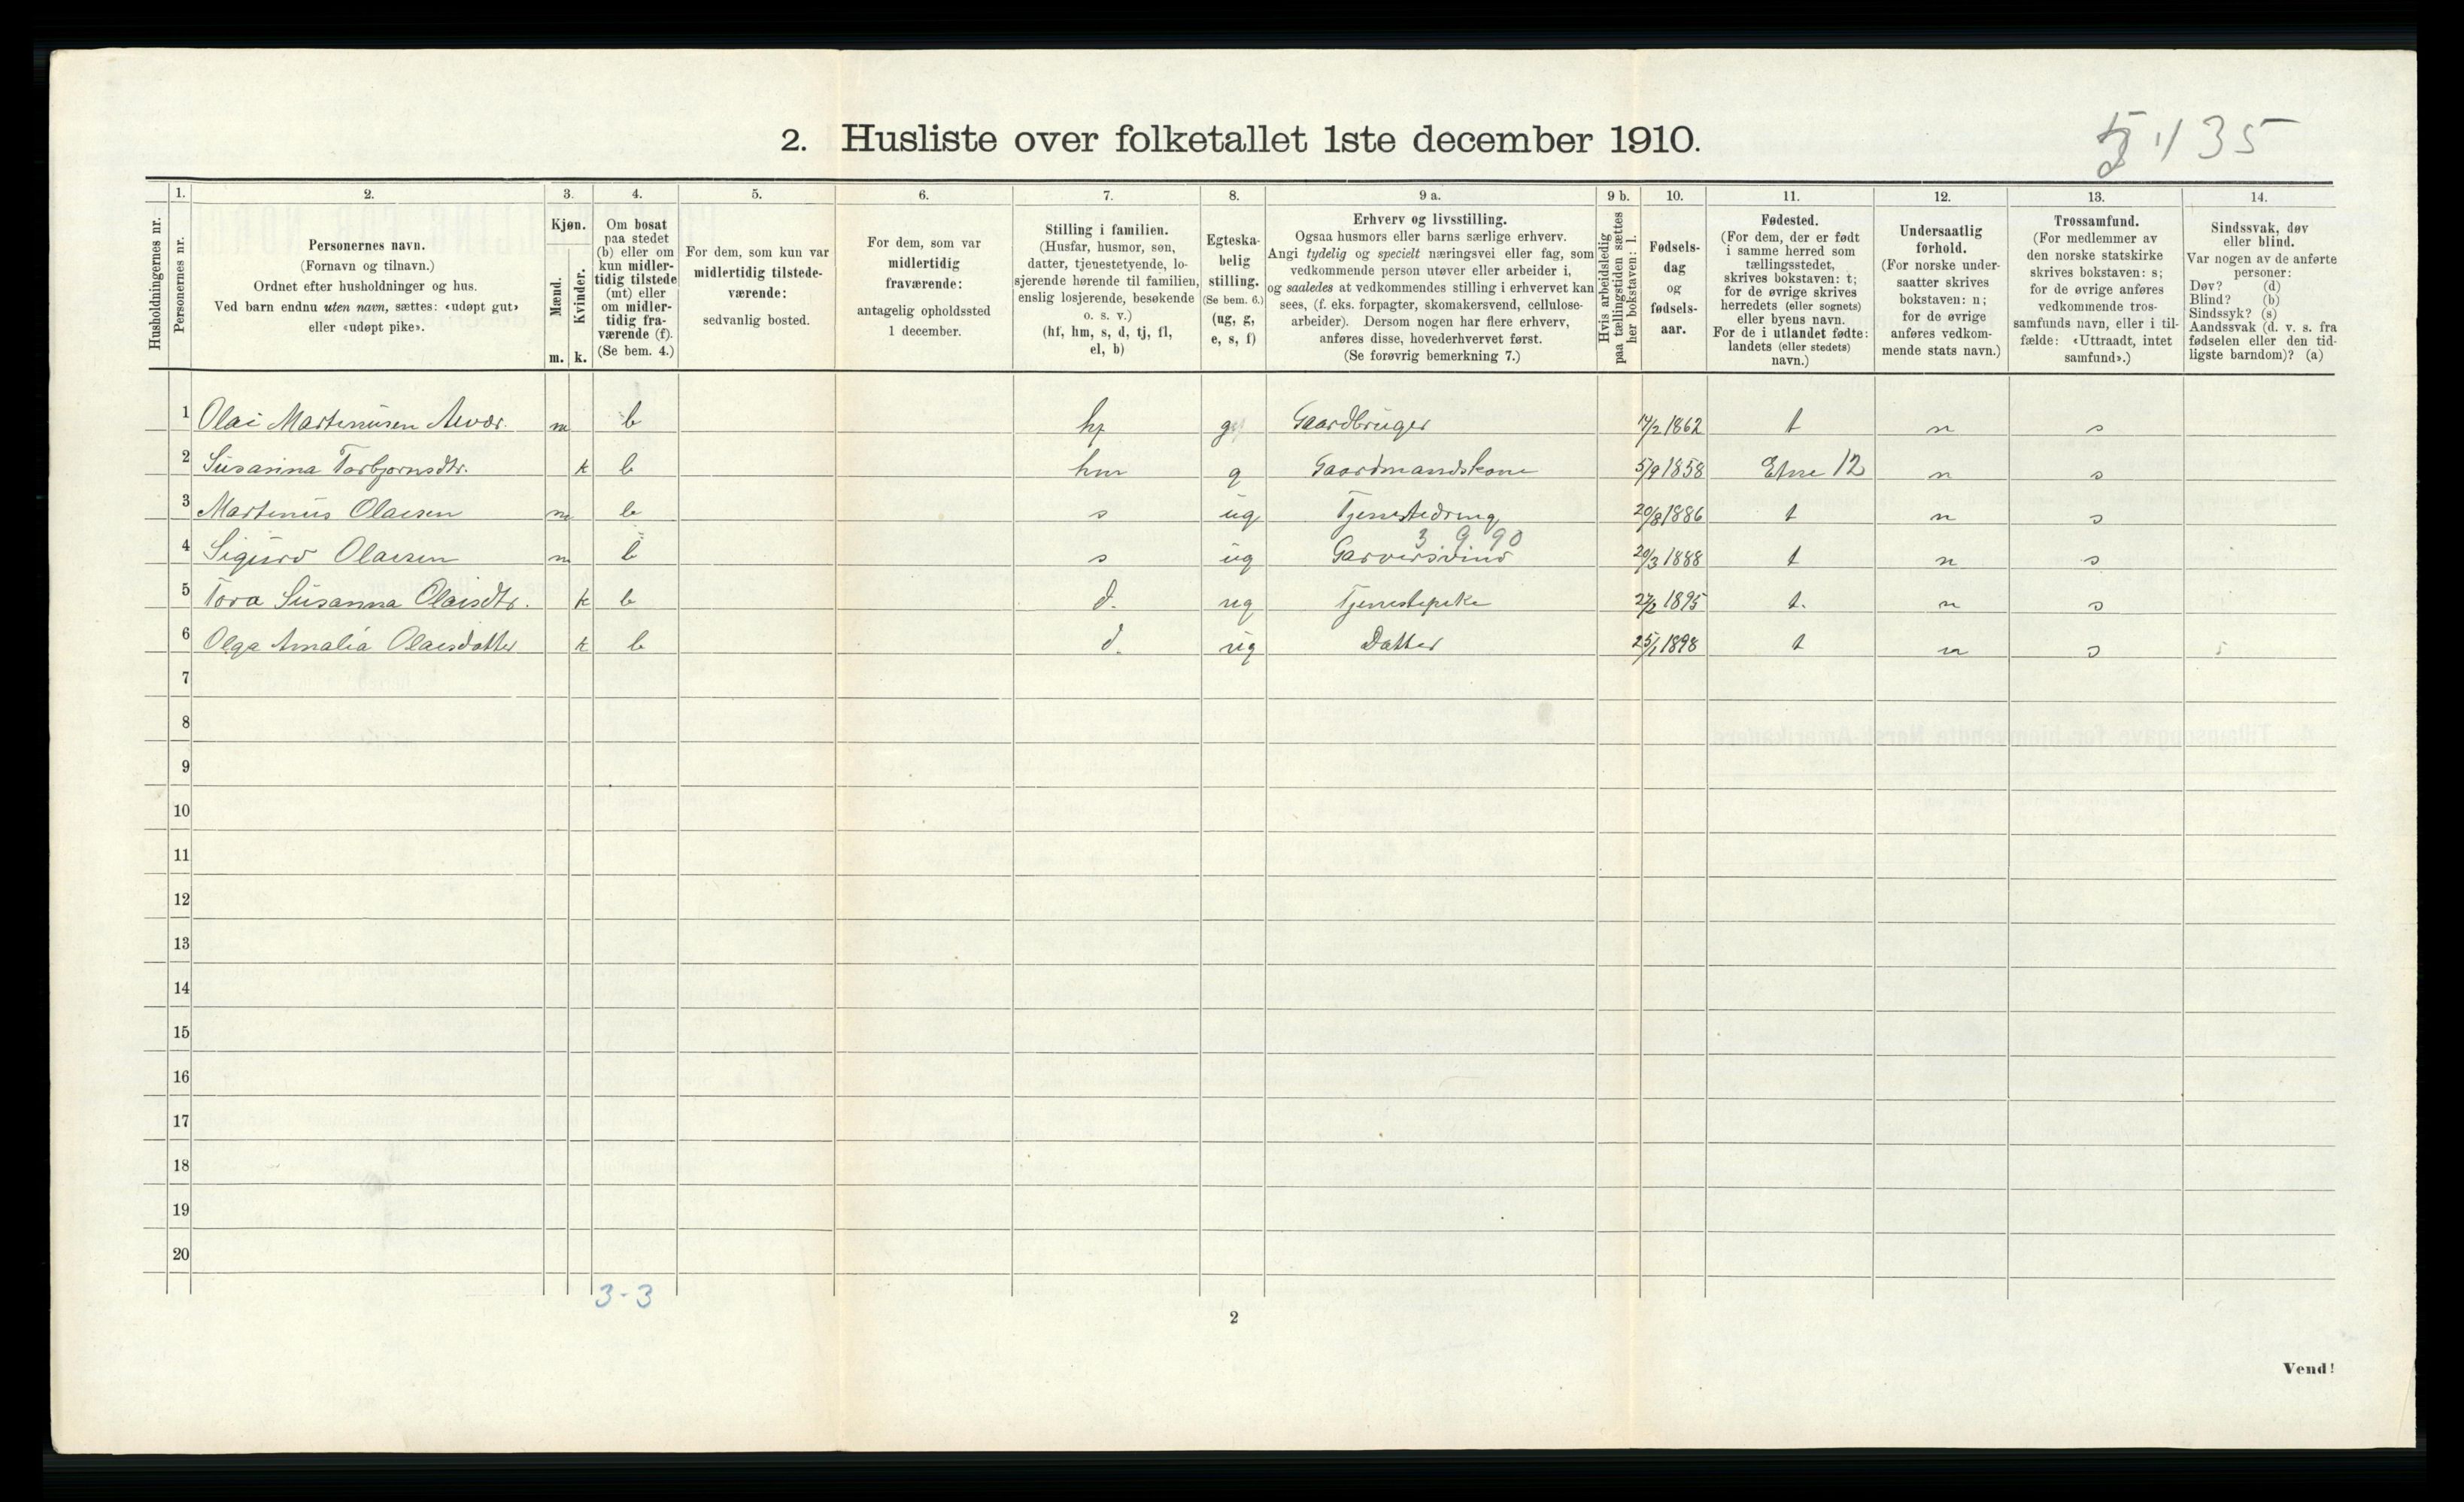 2. Husliste over folketallet 1ste december 1910.
35
Husholdningernes nr.
1.
Personernes nr.
2.
Personernes navn.
(Fornavn og tilnavn.)
Ordnet efter husholdninger og hus.
Ved barn endnu uten navn, sættes: «udøpt gut»
eller «udøpt pike».
3.
Kjøn.
Mænd.
Kvinder.
m. k.
4.
Om bosat
paa stedet
(b) eller om
kun midler-
tidig tilstede
(mt) eller
om midler-
tidig fra-
værende (f).
(Se bem. 4.)
5.
For dem, som kun var
midlertidig tilstede-
værende:
sedvanlig bosted.
6.
For dem, som var
midlertidig
fraværende:
antagelig opholdssted
1 december.
7.
Stilling i familien.
(Husfar, husmor, søn,
datter, tjenestetyende, lo-
sjerende hørende til familien,
enslig losjerende, besøkende
o. s. v.)
(hf, hm, s, d, tj, fl,
el, b)
8.
Egteska-
belig
stilling.
(Se bem. 6.)
(ug, g,
e, s, f)
9 a.
Erhverv og livsstilling.
Ogsaa husmors eller barns særlige erhverv.
Angi tydelig og specielt næringsvei eller fag, som
vedkommende person utøver eller arbeider i,
og saaledes at vedkommendes stilling i erhvervet kan
sees, (f. eks. forpagter, skomakersvend, cellulose-
arbeider). Dersom nogen har flere erhverv,
anføres disse, hovederhvervet først.
(Se forøvrig bemerkning 7.)
9 b.
Hvis arbeidsledig
paa tællingstiden sættes
her bokstaven: l.
10.
Fødsels-
dag
og
fødsels-
aar.
11.
Fødested.
(For dem, der er født
i samme herred som
tællingsstedet,
skrives bokstaven: t;
for de øvrige skrives
herredets (eller sognets)
eller byens navn.
For de i utlandet fødte:
landets (eller stedets)
navn.)
12.
Undersaatlig
forhold.
(For norske under-
saatter skrives
bokstaven: n;
for de øvrige
anføres vedkom-
mende stats navn.)
13.
Trossamfund.
(For medlemmer av
den norske statskirke
skrives bokstaven: s;
for de øvrige anføres
vedkommende tros-
samfunds navn, eller i til-
fælde: «Uttraadt, intet
samfund».)
14.
Sindssvak, døv
eller blind.
Var nogen av de anførte
personer:
Døv? (d)
Blind? (b)
Sindssyk? (s)
Aandssvak (d. v. s. fra
fødselen eller den tid-
ligste barndom)? (a)
1 Olai Martinusen m b hf g Gaardbruger 14/2 1862 t n s
2 Susanna Torbjørnsdtr. k b hm g Gaardmandskone 5/9 1858 Etne 12 n s
3 Martinus Olaisen m b s ug Tjenestedreng 20/8 1886 t n s
3 9 90
4 Sigurd Olaisen m b s ug Garversvend 20/3 1888 t n s
5 Tora Susanna Olaisdtr. k b d. ug Tjenestepike 27/2 1895 t. n s
6 Olga Amalia Olaisdatter k b d. ug Datter 25/1 1898 t n s
7
8
9
10
11
12
13
14
15
16
17
18
19
20
3-3
2
Vend!